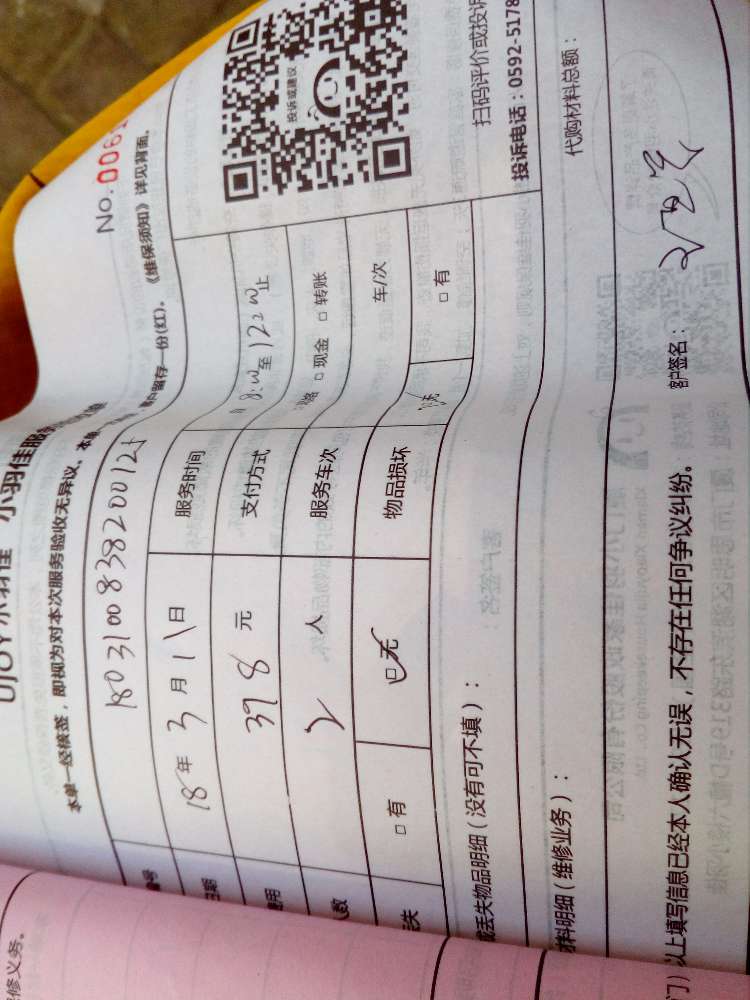 UJOY小羽佳 小羽佳服务
No. 0061
本单一经核签，即视为对本次服务验收无异议。本单一 客户留存一份(红)。《维保须知》详见背面。
编号 180310083820012
日期 18年3月11日 服务时间 8:00至1200止
费用 398元 支付方式 □现金 □转账
人数 2人 服务车次 车/次
丢失 □有 ☑无 物品损坏 □有
投诉或建议
扫码评价或投诉
投诉电话：0592-5178
或丢失物品明细（没有可不填）：
材料明细（维修业务）： 代购材料总额：
门）以上填写信息已经本人确认无误，不存在任何争议纠纷。 客户签名：
修义务。